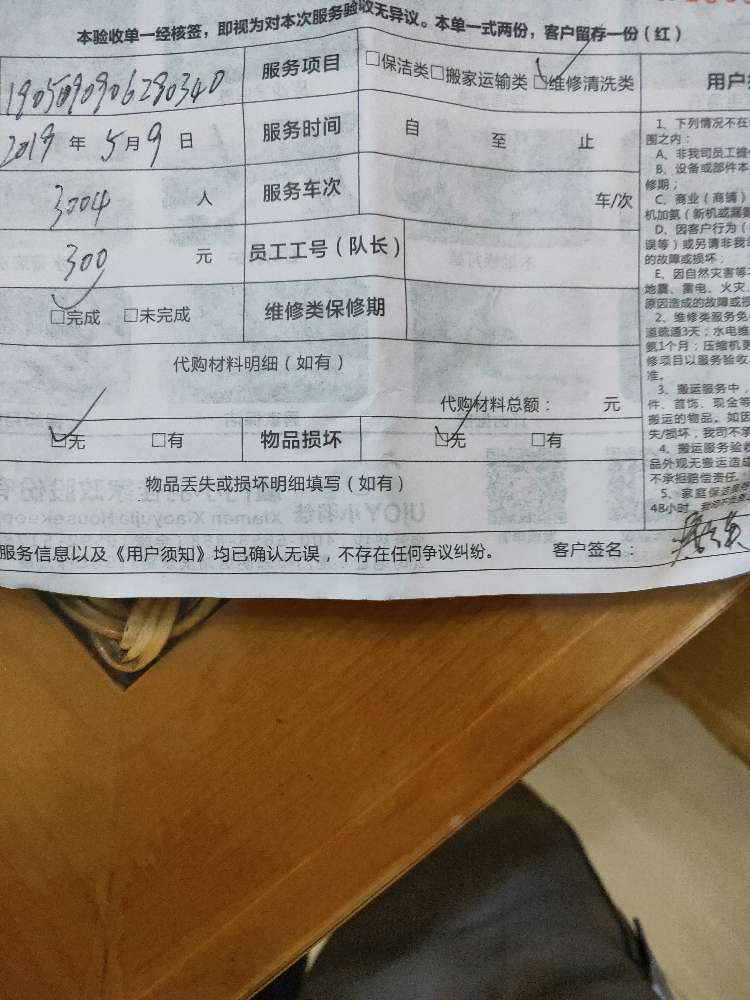 本验收单一经核签，即视为对本次服务验收无异议。本单一式两份，客户留存一份（红）
1905090906290340
服务项目
□保洁类□搬家运输类□维修清洗类
2019年5月9日
服务时间
自 至 止
3004 人
服务车次
车/次
300 元
员工工号（队长）
□完成 □未完成
维修类保修期
代购材料明细（如有）
代购材料总额： 元
□无 □有
物品损坏
□无 □有
物品丢失或损坏明细填写（如有）
服务信息以及《用户须知》均已确认无误，不存在任何争议纠纷。
客户签名：
用户
1、下列情况不在
围之内：
A、非我司员工
B、设备或部件本
修期；
C、商业（商铺）
机加氨（新机或漏
D、因客户行为（
误等）或另请非我
的故障或损坏；
E、因自然灾害等
地震、雷电、火灾
原因造成的故障或损
2、维修类服务免
道疏通3天；水电维
氨1个月；压缩机更
修项目以服务验收
准。
3、搬运服务中，
件、首饰、现金等
搬运的物品。如因
失/损坏，我司不承
4、搬运服务验收
品外观无搬运造成
不承担赔偿责任。
5、家庭保洁
48小时